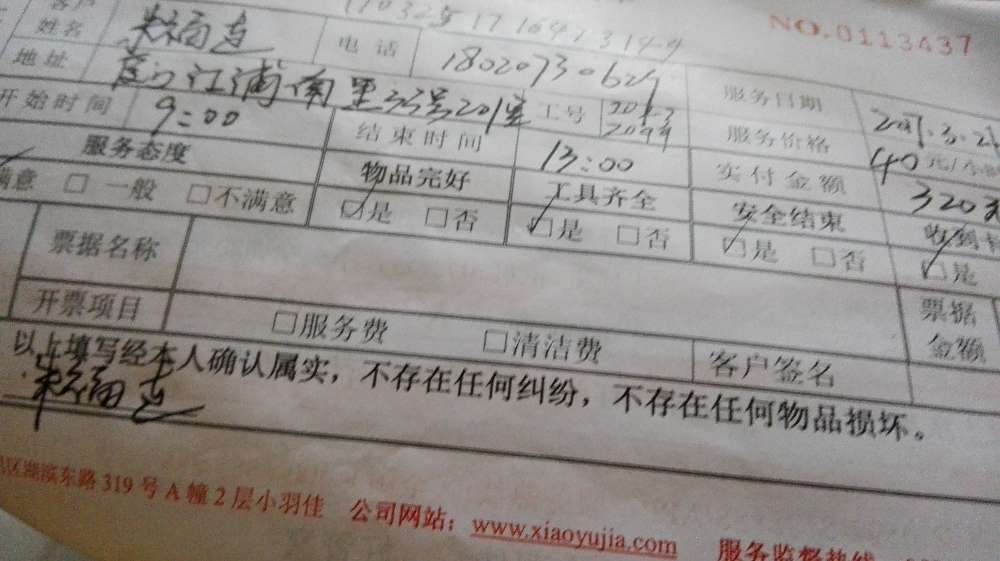 NO.0113437
客户姓名 电话 1802073062 服务日期
地址 江浦南里33号201室 工号 服务价格 40元/小
开始时间 9:00 结束时间 13:00 实付金额 320
服务态度 物品完好 工具齐全 安全结束 收到
满意 □一般 □不满意 ☑是 □否 ☑是 □否 ☑是 □否 ☑是
票据名称 票据金额
开票项目 □服务费 □清洁费 客户签名
以上填写经本人确认属实，不存在任何纠纷，不存在任何物品损坏。
区湖滨东路319号A幢2层小羽佳 公司网站：www.xiaoyujia.com 服务监督热线